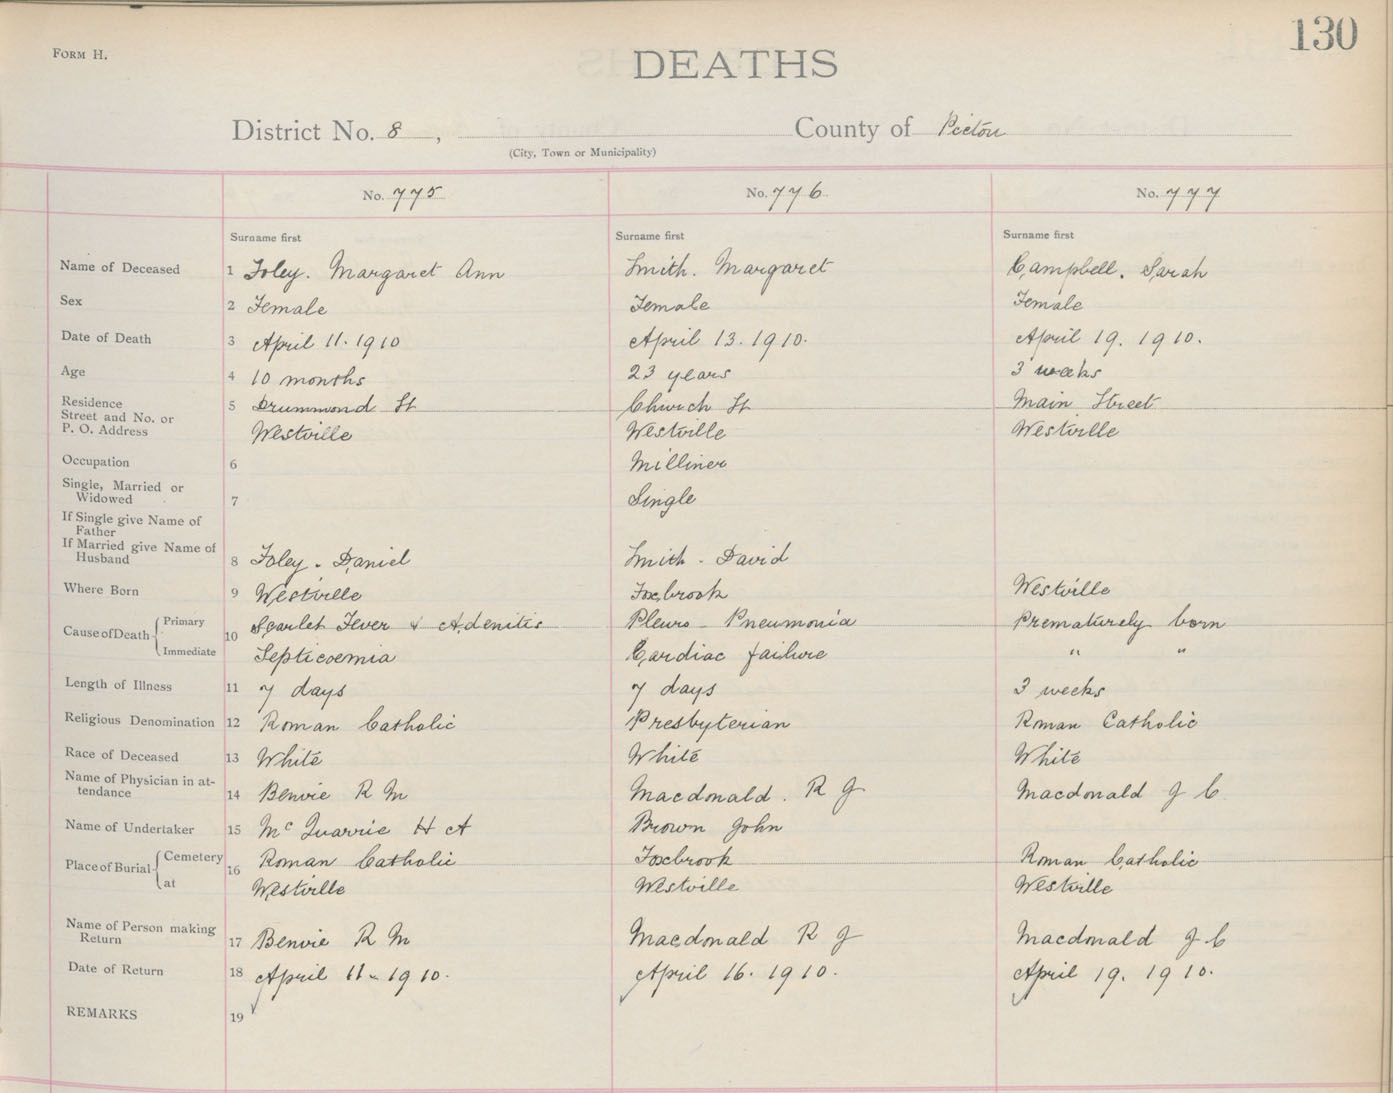 130
FORM H.
DEATHS
District No. 8 , County of Pictou
(City, Town or Municipality)
No. 775 No. 776 No. 777
Surname first Surname first Surname first
Name of Deceased 1 Foley. Margaret Ann Smith. Margaret Campbell. Sarah
Sex 2 Female Female Female
Date of Death 3 April 11. 1910 April 13. 1910. April 19. 1910.
Age 4 10 months 23 years 3 weeks
Residence 5 Drummond St Church St Main Street
Street and No. or
P. O. Address Westville Westville Westville
Occupation 6 Milliner
Single, Married or
Widowed 7 Single
If Single give Name of
Father
If Married give Name of
Husband 8 Foley. Daniel Smith - David
Where Born 9 Westville Foxbrook Westville
Cause of Death Primary 10 Scarlet Fever & Adenitis Pleuro - Pneumonia Prematurely born
Immediate Septicoemia Cardiac failure " "
Length of Illness 11 7 days 7 days 3 weeks
Religious Denomination 12 Roman Catholic Presbyterian Roman Catholic
Race of Deceased 13 White White White
Name of Physician in at-
tendance 14 Benvie R M Macdonald. R J Macdonald J C
Name of Undertaker 15 Mc Quarrie H A Brown John
Place of Burial Cemetery 16 Roman Catholic Foxbrook Roman Catholic
at Westville Westville Westville
Name of Person making
Return 17 Benvie R M Macdonald R J Macdonald J C
Date of Return 18 April 11 - 1910. April 16. 1910. April 19. 1910.
REMARKS 19